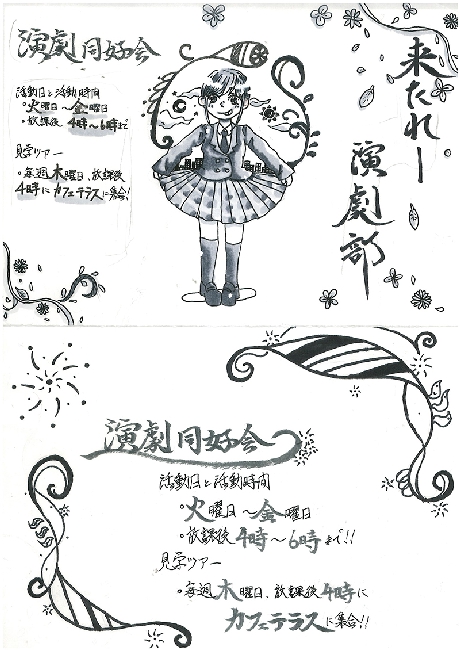 演劇同好会
活動日と活動時間
○火曜日〜金曜日
○放課後 4時〜6時まで
見学ツアー
○毎週木曜日、放課後
4時にカフェテラスに集合!
来たれー
演劇部
演劇同好会
活動日と活動時間
○火曜日〜金曜日
○放課後 4時〜6時まで!!
見学ツアー
○毎週木曜日、放課後4時に
カフェテラスに集合!!